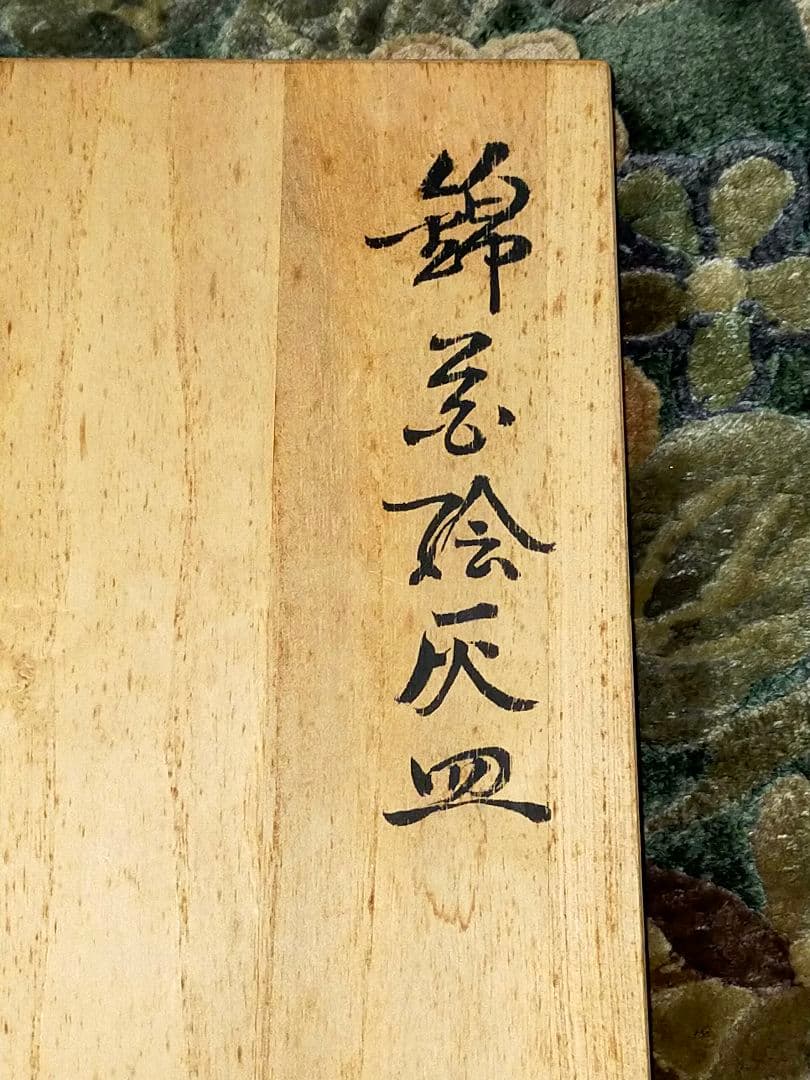 錦花絵灰皿